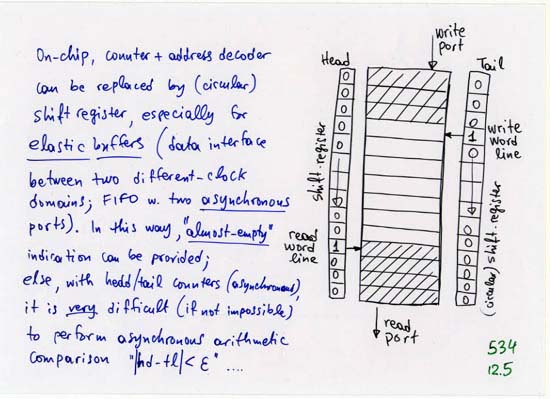 On-chip, counter + address decoder
can be replaced by (circular)
shift register, especially for
elastic buffers (data interface
between two different-clock
domains; FIFO w. two asynchronous
ports). In this way, "almost-empty"
indication can be provided;
else, with head/tail counters (asynchronous),
it is very difficult (if not impossible)
to perform asynchronous arithmetic
comparison "|hd-tl| < ε" ....
write
port
Head
0
0
0
0
0
shift-register
0
0
1
0
0
0
read
word
line
read
port
Tail
0
0
0
1
0
write
word
line
0
0
0
0
0
0
(circular) shift-register
534
12.5